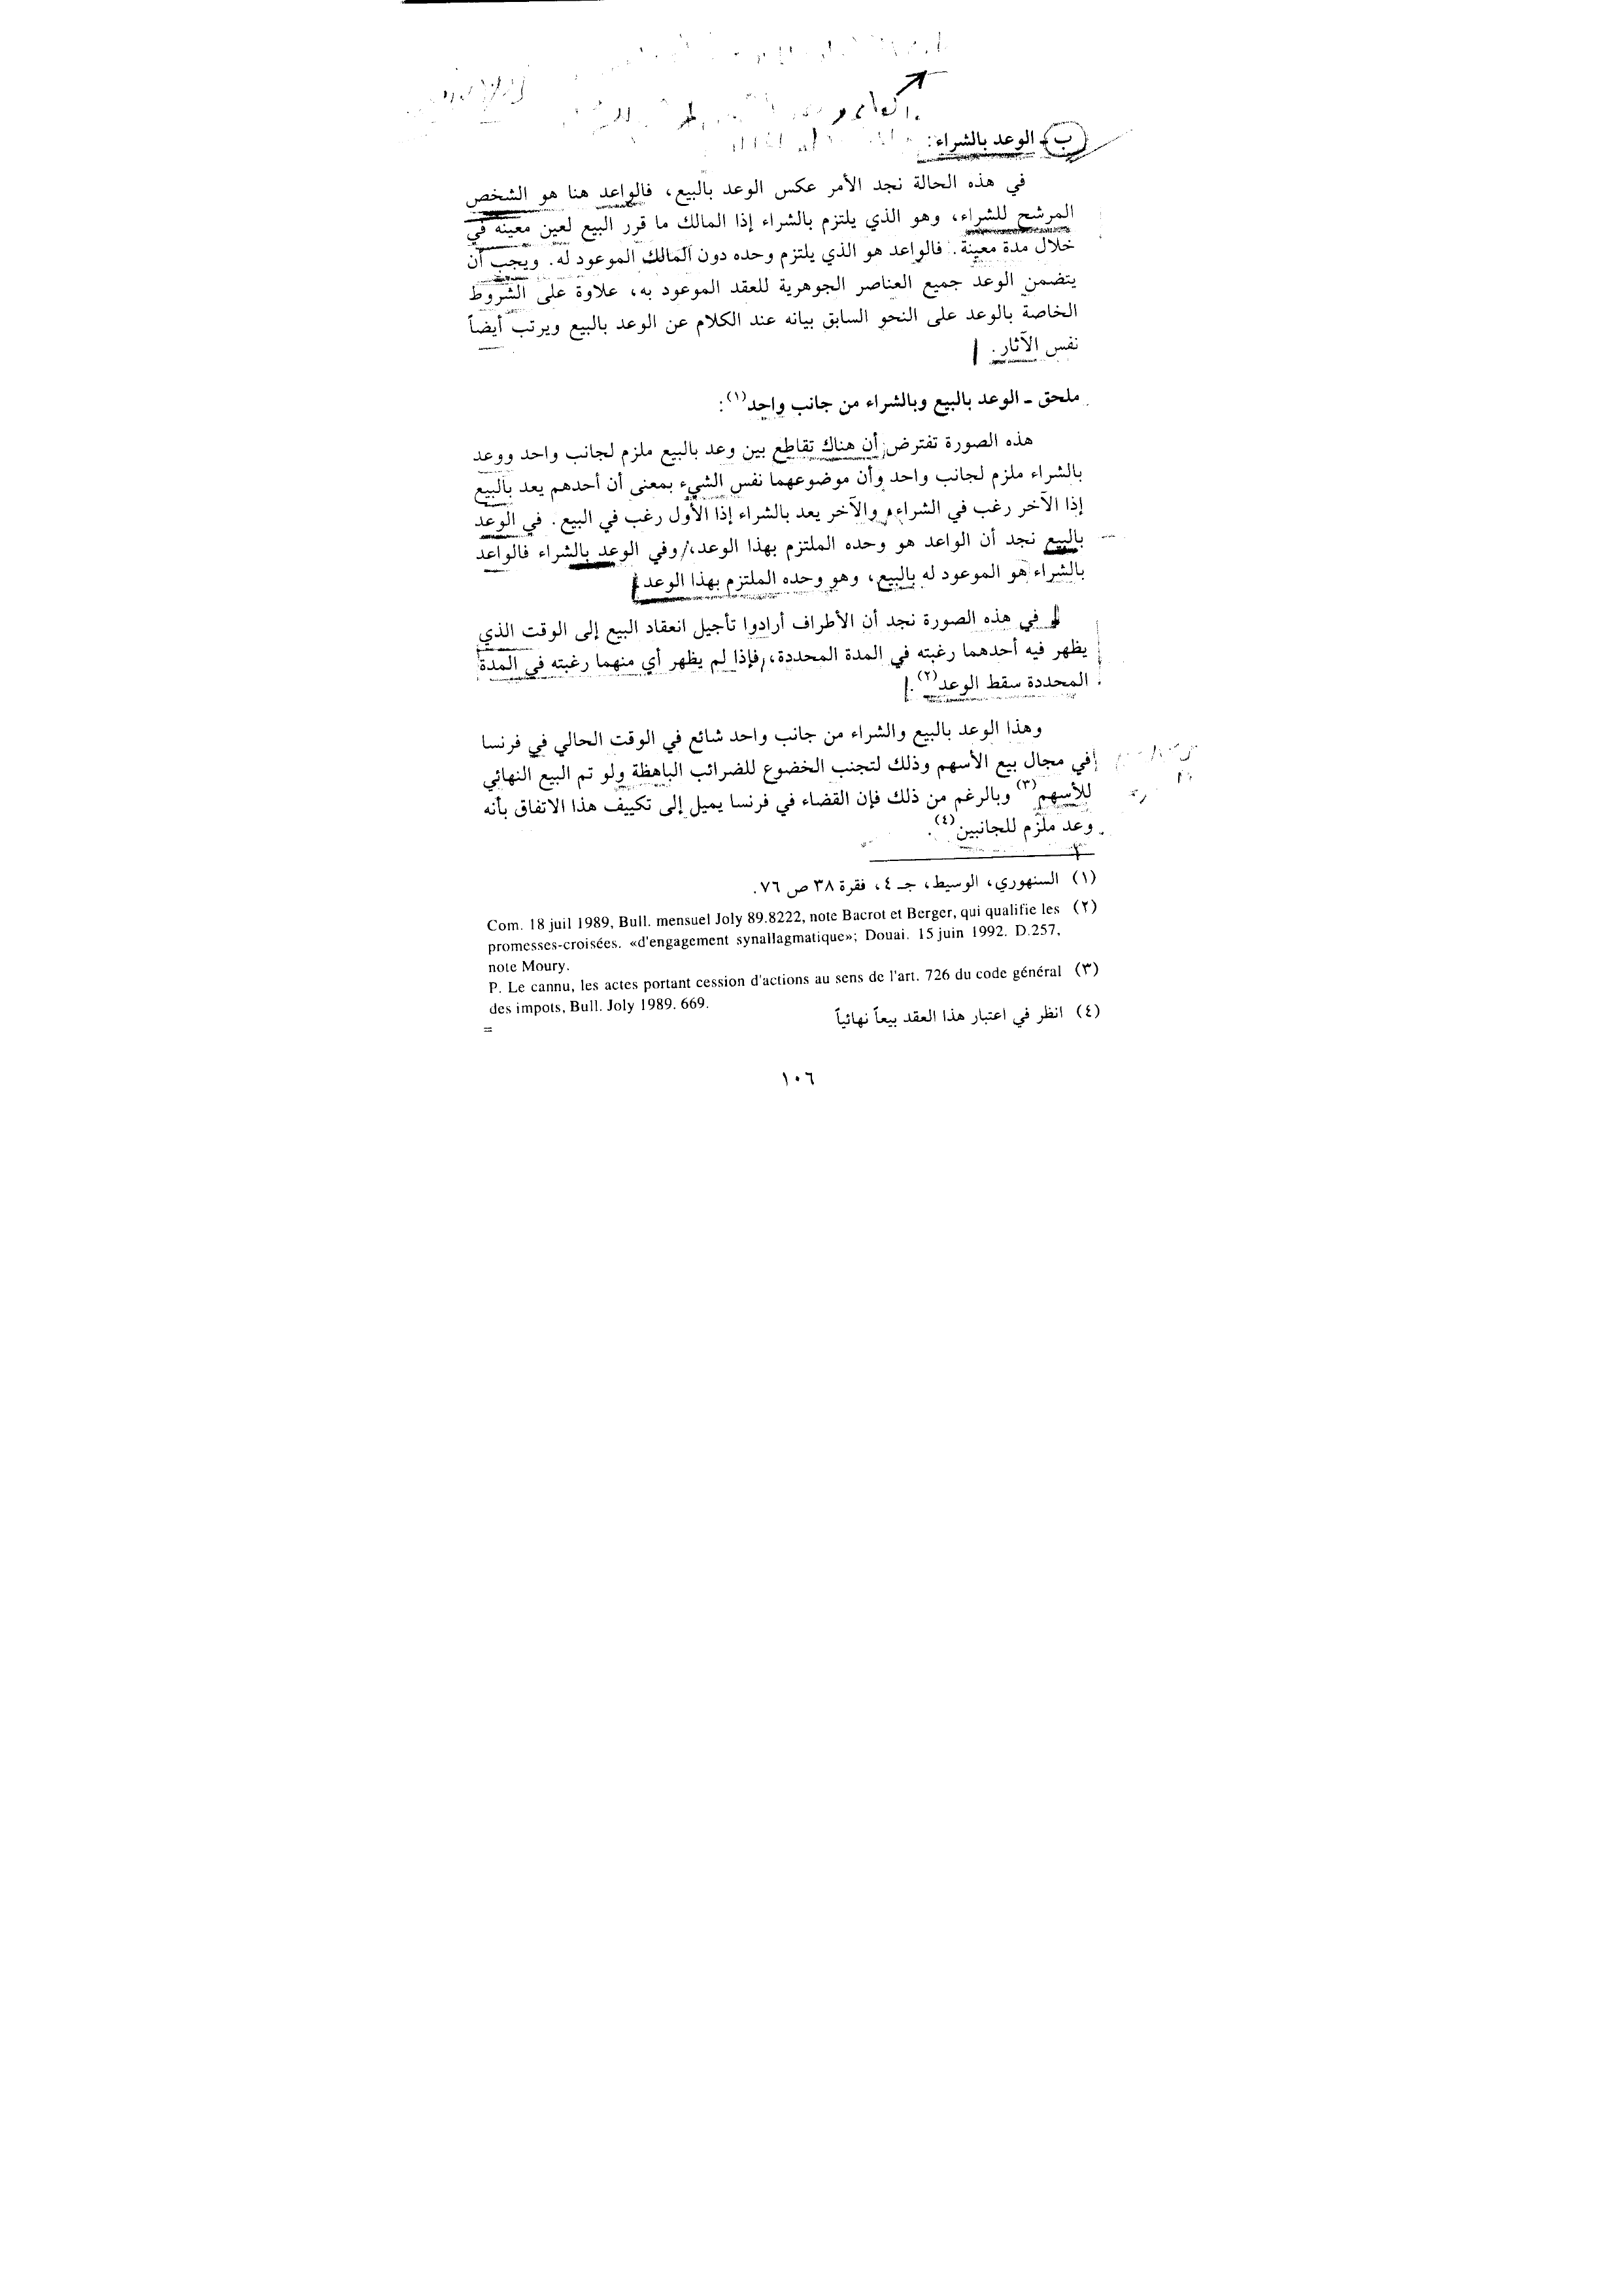 ب - الوعد بالشراء:
في هذه الحالة نجد الأمر عكس الوعد بالبيع، فالواعد هنا هو الشخص
المرشح للشراء، وهو الذي يلتزم بالشراء إذا المالك ما قرر البيع لعين معينة في
خلال مدة معينة. فالواعد هو الذي يلتزم وحده دون المالك الموعود له. ويجب أن
يتضمن الوعد جميع العناصر الجوهرية للعقد الموعود به، علاوة على الشروط
الخاصة بالوعد على النحو السابق بيانه عند الكلام عن الوعد بالبيع ويرتب أيضاً
نفس الآثار.
ملحق ـ الوعد بالبيع وبالشراء من جانب واحد(١):
هذه الصورة تفترض أن هناك تقاطع بين وعد بالبيع ملزم لجانب واحد ووعد
بالشراء ملزم لجانب واحد وأن موضوعهما نفس الشيء بمعنى أن أحدهم يعد بالبيع
إذا الآخر رغب في الشراء، والآخر يعد بالشراء إذا الأول رغب في البيع. في الوعد
بالبيع نجد أن الواعد هو وحده الملتزم بهذا الوعد، وفي الوعد بالشراء فالواعد
بالشراء هو الموعود له بالبيع، وهو وحده الملتزم بهذا الوعد.
في هذه الصورة نجد أن الأطراف أرادوا تأجيل انعقاد البيع إلى الوقت الذي
يظهر فيه أحدهما رغبته في المدة المحددة، فإذا لم يظهر أي منهما رغبته في المدة
المحددة سقط الوعد(٢).
وهذا الوعد بالبيع والشراء من جانب واحد شائع في الوقت الحالي في فرنسا
في مجال بيع الأسهم وذلك لتجنب الخضوع للضرائب الباهظة ولو تم البيع النهائي
للأسهم(٣) وبالرغم من ذلك فإن القضاء في فرنسا يميل إلى تكييف هذا الاتفاق بأنه
وعد ملزم للجانبين(٤).
(١) السنهوري، الوسيط، جـ ٤، فقرة ٣٨ ص ٧٦.
(٢) Com. 18 juil 1989, Bull. mensuel Joly 89.8222, note Bacrot et Berger, qui qualifie les
promesses-croisées. «d'engagement synallagmatique»; Douai. 15 juin 1992. D.257,
note Moury.
(٣) P. Le cannu, les actes portant cession d'actions au sens de l'art. 726 du code général
des impots, Bull. Joly 1989. 669.
(٤) انظر في اعتبار هذا العقد بيعاً نهائياً
=
١٠٦